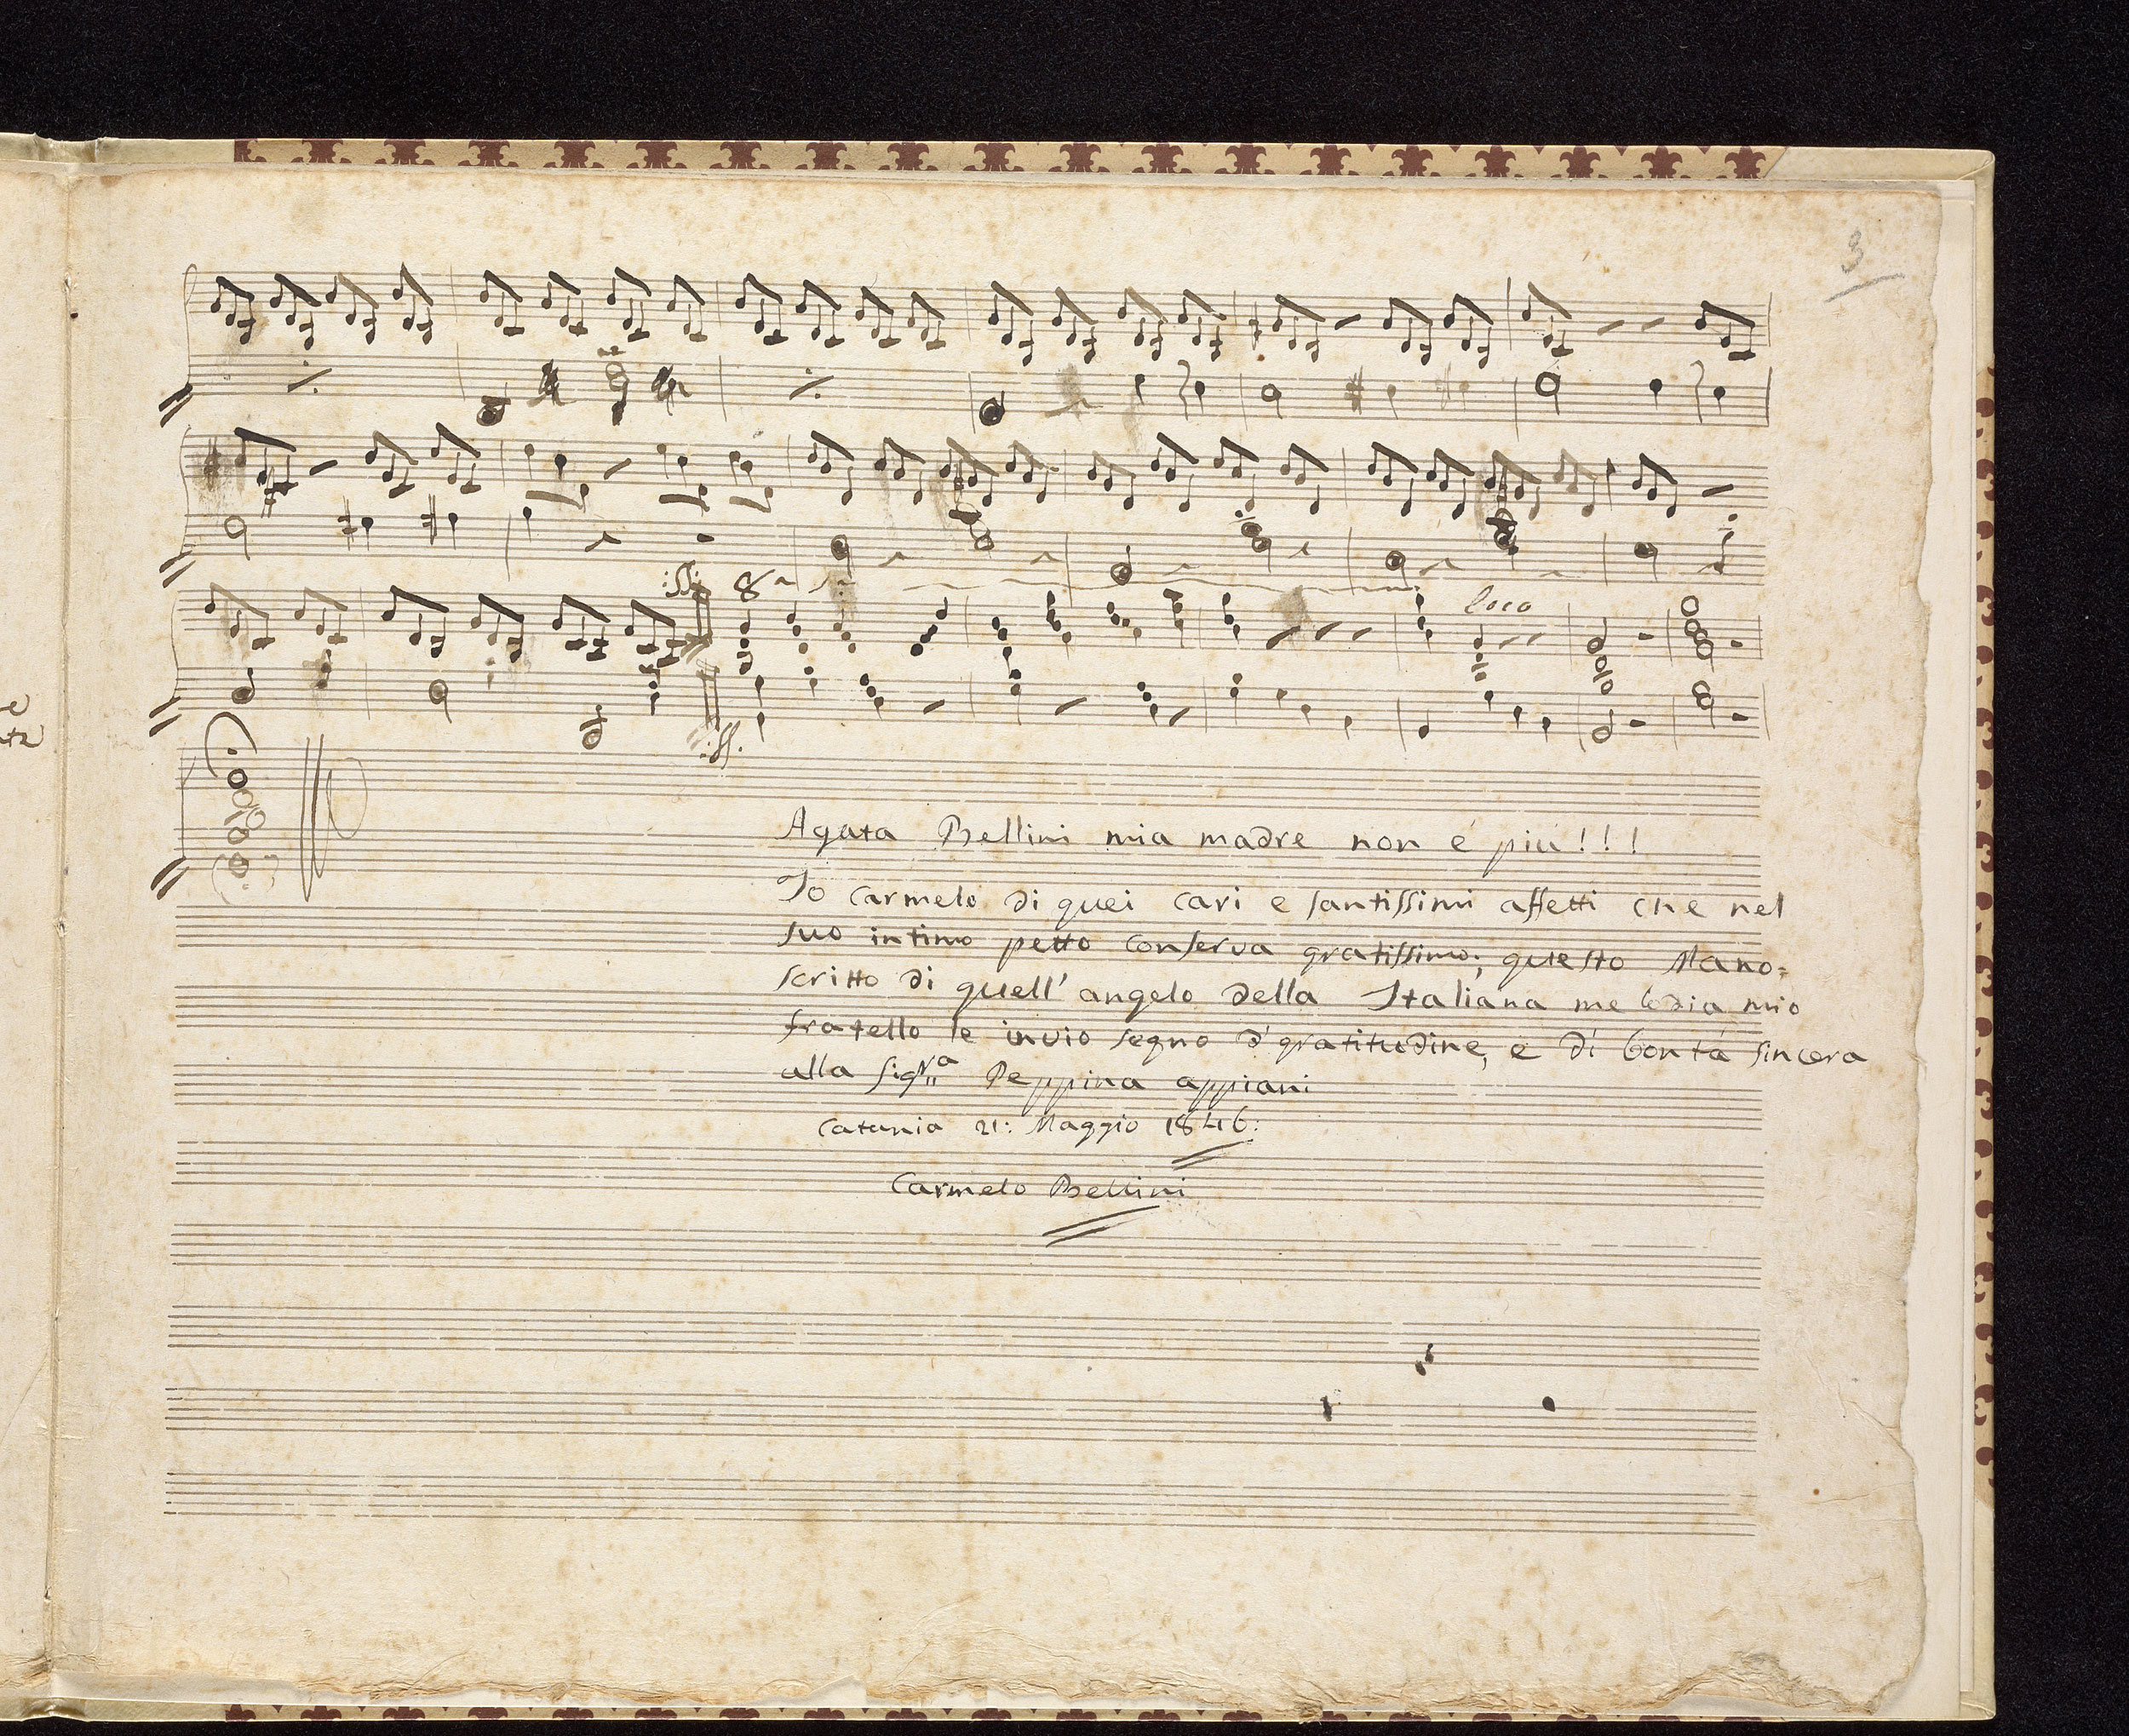 3
:ff: 8a
loco
:ff.
e
Agata Bellini mia madre non é piu!!!
Io Carmelo di quei cari e santissimi affetti che nel
suo intimo petto conserva gratissimo; questo Mano=
scritto di quell' angelo della Italiana melodia mio
fratello le invio segno d'gratitudine, e di bontá sincera
alla Sigra Peppina appiani
Catania 21: Maggio 1846:
Carmelo Bellini